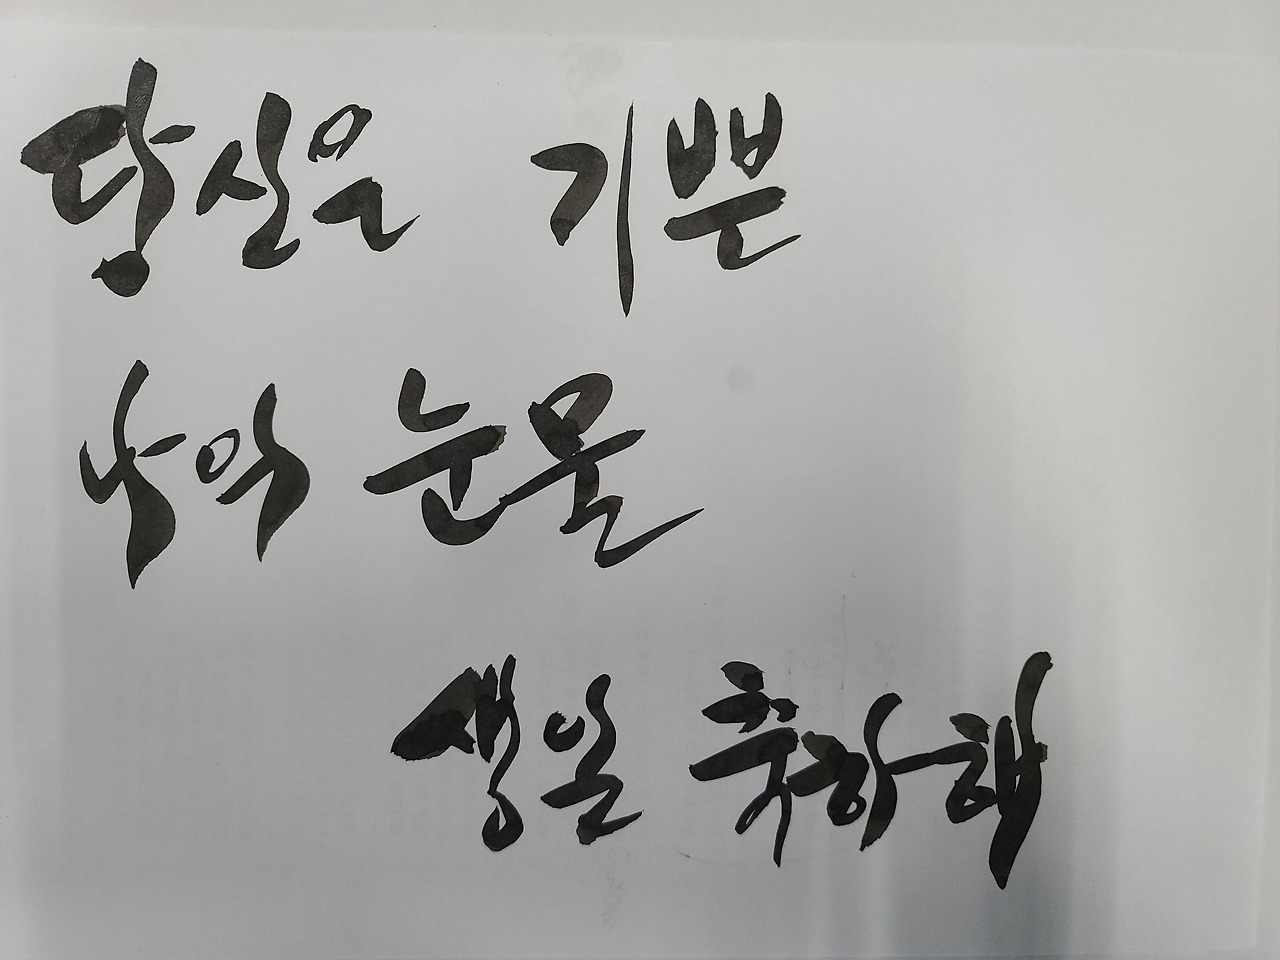 당신은 기쁜
나의 눈물
생일 축하해